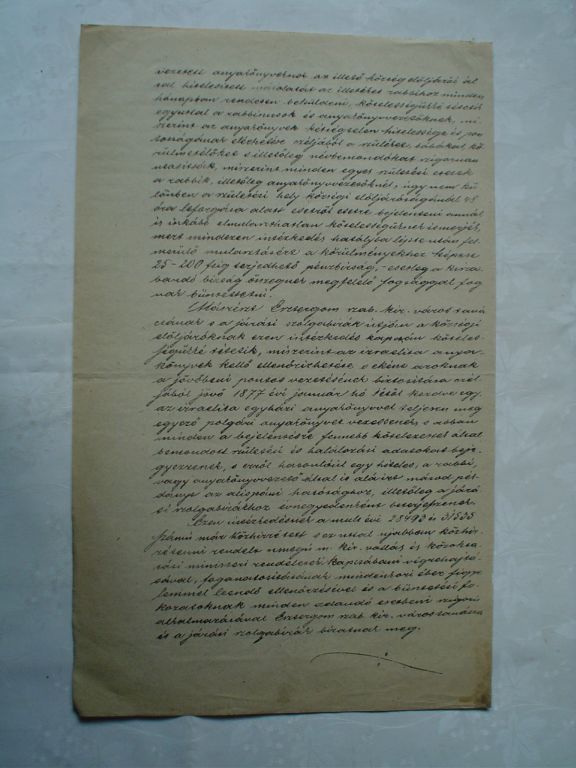 vezetett anyakönyvnek az illető község előljárói ál
tal hitelesített másolatát az illetékes rabbihoz minden
hónapban rendesen beküldeni, kötelességükké tétetik
egyuttal a rabbinusok és anyakönyvvezetőknek, mi
szerint az anyakönyvek kétségtelen hitelessége és pon
tosságának elérhetése czéljából a szülőket, bábákat kö
rülmetélőket s illetőleg névbemondókat szigoruan
utasitsák, miszerint minden egyes szülési esetet
a rabbik, illetőleg anyakönyvvezetőknél, ugy nem kü
lönben a születési hely községi előljáróságánál 48
óra lefolyása alatt esetről esetre bejelenteni annál
is inkább elmulaszthatlan kötelességüknek ismerjék,
mert mindezen intézkedés hatályba lépte után fel
merülő mulasztásért a körülményekhez képest
25-200 ftig terjedhető pénzbirság, esetleg a kirva
bandó birság összegnek megfelelő fogsággal fog
nak büntettetni.
Másrészt Esztergom szab. kir. város taná
csának s a járási szolgabirák utján a községi
előljáróknak ezen intézkedés kapcsán köteles
ségükké tétetik, miszerint az izraelita anya
könyvek kellő ellenőrizhetése, s eként azoknak
a jövőbeni pontos vezetésének biztositása czél
jából jövő 1877 évi január hó 1étől kezdve egy,
az izraelita egyházi anyakönyvvel teljesen meg
egyező polgári anyakönyvet vezessenek, s abban
minden a bejelentésre fennebb kötelezettek által
bemondott születési és halálozási adatokat beje
gyezzenek, s erről hasonlóul egy hiteles, a rabbi,
vagy anyakönyvvezető által is aláirt másod pél
dányt az alispáni hatósághoz, illetőleg a járá
si szolgabirákhoz évnegyedenként beterjesszenek.
Ezen intézkedésnek a mult évi 28493 és 31535
számú már közhirré tett s ez uttal ujabban közhir
rétetni rendelt nmgú m. kir. vallás és közokta
tási ministeri rendeletek kapcsábani végrehajtá
sával, foganatositásának mindenkori éber figye
lemmel leendő ellenőrzésével és a büntetési fo
kozatoknak minden adandó esetbeni szigorú
alkalmazásával Esztergom szab. kir. város tanácsa
és a járási szolgabirák bizatnak meg.